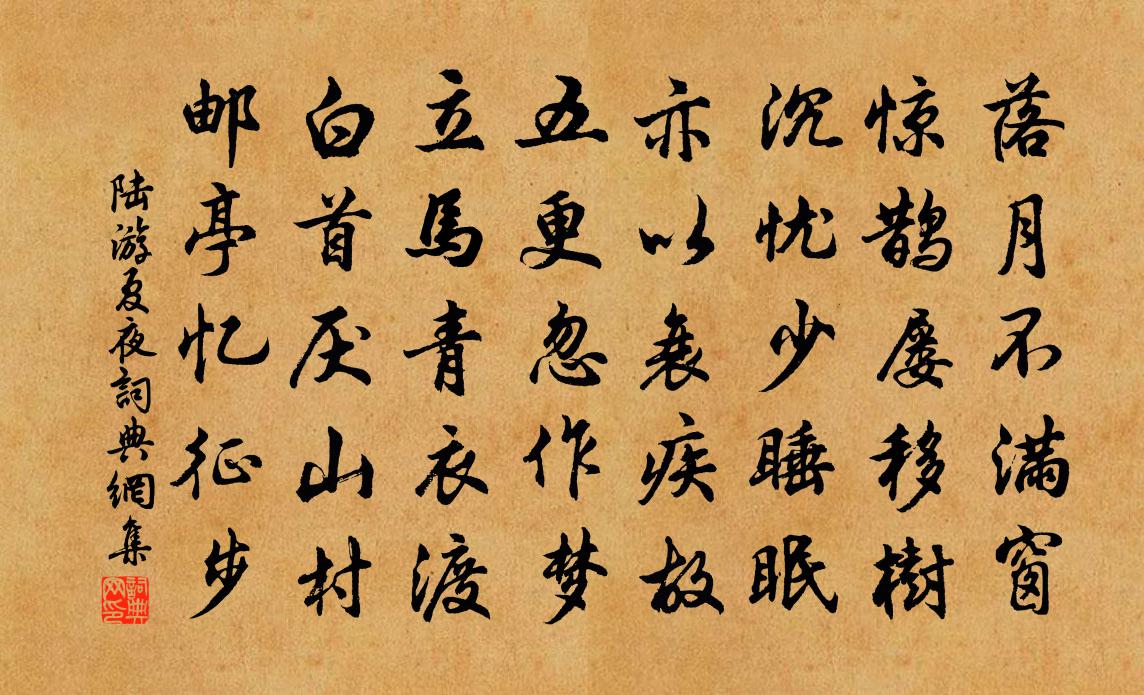 落月不满窗
惊鹊屡移樹
沉忧少睡眠
亦以衰疾故
五更忽作梦
立馬青衣渡
白首厌山村
邮亭忆征步
陆游夏夜詞典網集
詞典网印